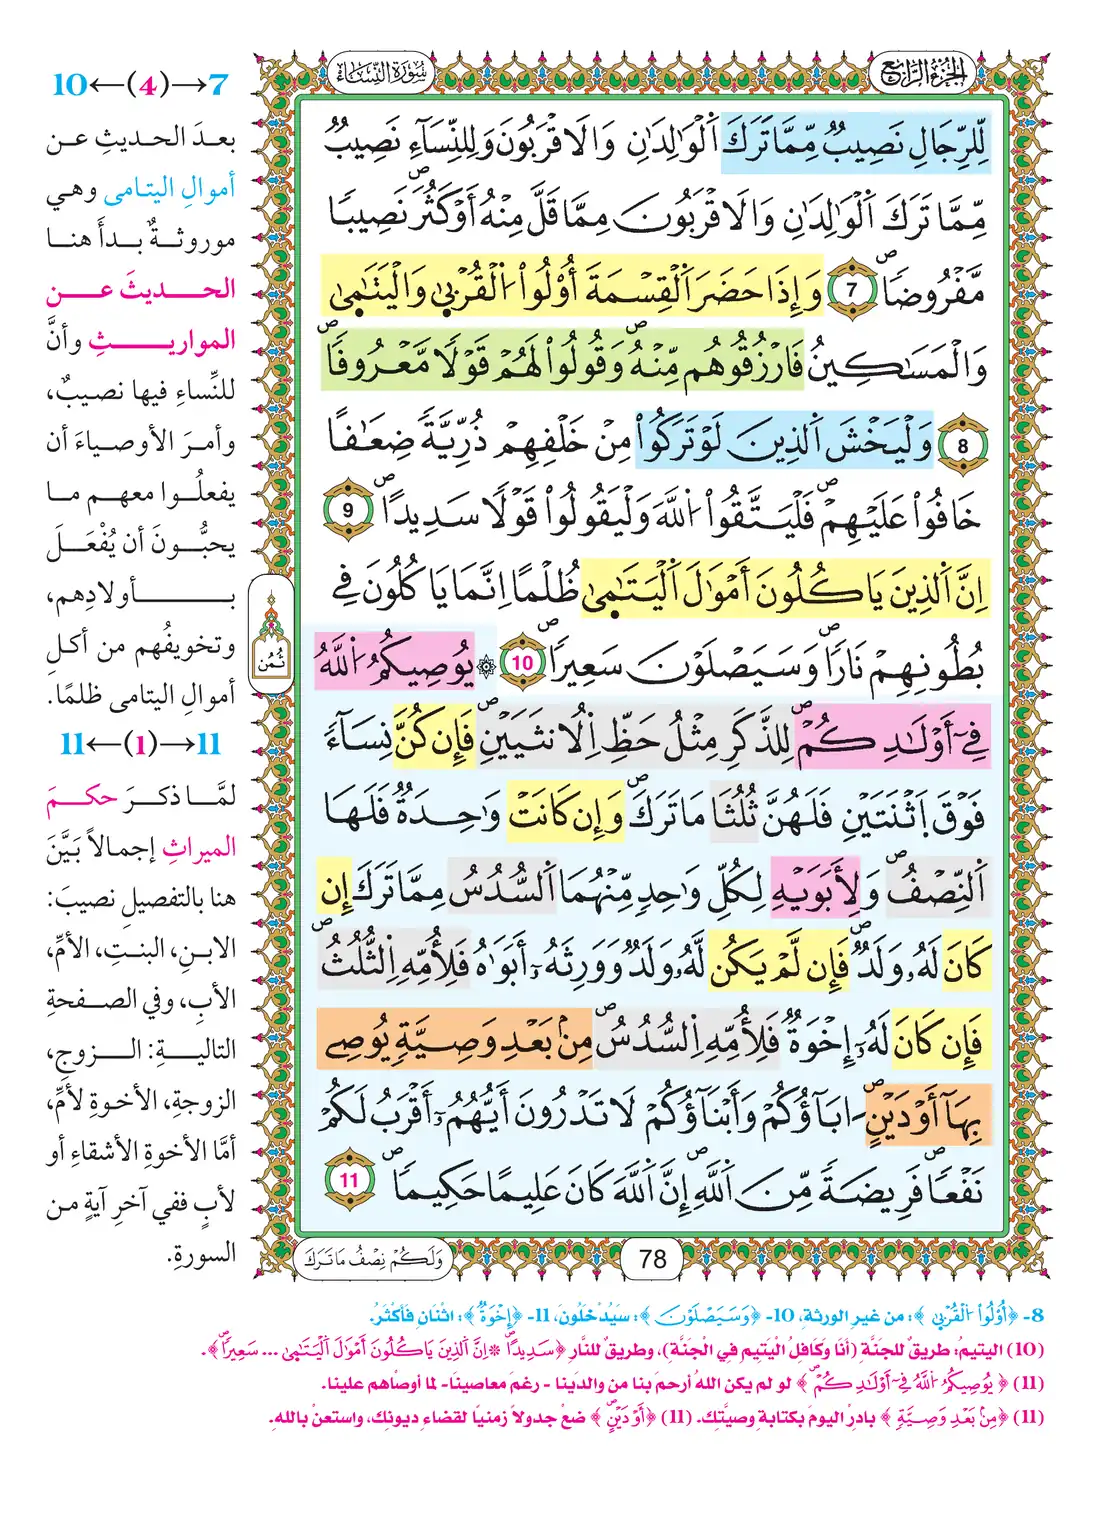 الجزء الرابع
سورة النساء
لِّلرِّجَالِ نَصِيبٌ مِّمَّا تَرَكَ اَ۬لْوَٰلِدَٰنِ وَالَاقْرَبُونَ وَلِلنِّسَآءِ نَصِيبٌ
مِّمَّا تَرَكَ اَ۬لْوَٰلِدَٰنِ وَالَاقْرَبُونَ مِمَّا قَلَّ مِنْهُ أَوْ كَثُرَۖ نَصِيباٗ
مَّفْرُوضاٗۖ 7 وَإِذَا حَضَرَ اَ۬لْقِسْمَةَ أُوْلُواْ اُ۬لْقُرْب۪يٰ وَالْيَتَٰم۪يٰ
وَالْمَسَٰكِينُ فَارْزُقُوهُم مِّنْهُۖ وَقُولُواْ لَهُمْ قَوْلاٗ مَّعْرُوفاٗۖ
8 وَلْيَخْشَ اَ۬لذِينَ لَوْ تَرَكُواْ مِنْ خَلْفِهِمْ ذُرِّيَّةٗ ضِعَٰفاً
خَافُواْ عَلَيْهِمْۖ فَلْيَتَّقُواْ اُ۬للَّهَ وَلْيَقُولُواْ قَوْلاٗ سَدِيداًۖ 9
اِنَّ اَ۬لذِينَ يَاكُلُونَ أَمْوَٰلَ اَ۬لْيَتَٰم۪يٰ ظُلْماً اِنَّمَا يَاكُلُونَ فِي
بُطُونِهِمْ نَاراٗۖ وَسَيَصْلَوْنَ سَعِيراٗۖ 10 ۞ يُوصِيكُمُ اُ۬للَّهُ
فِےٓ أَوْلَٰدِكُمْۖ لِلذَّكَرِ مِثْلُ حَظِّ اِ۬لُانثَيَيْنِۖ فَإِن كُنَّ نِسَآءٗ
فَوْقَ اَ۪ثْنَتَيْنِ فَلَهُنَّ ثُلُثَا مَا تَرَكَۖ وَإِن كَانَتْ وَٰحِدَةٞ فَلَهَا
اَ۬لنِّصْفُۖ وَلِأَبَوَيْهِ لِكُلِّ وَٰحِدٖ مِّنْهُمَا اَ۬لسُّدُسُ مِمَّا تَرَكَ إِن
كَانَ لَهُۥ وَلَدٞۖ فَإِن لَّمْ يَكُن لَّهُۥ وَلَدٞ وَوَرِثَهُۥٓ أَبَوَٰهُ فَلِأُمِّهِ اِ۬لثُّلُثُۖ
فَإِن كَانَ لَهُۥٓ إِخْوَةٞ فَلِأُمِّهِ اِ۬لسُّدُسُۖ مِنۢ بَعْدِ وَصِيَّةٖ يُوصِے
بِهَآ أَوْ دَيْنٍۖ ـ اَبَآؤُكُمْ وَأَبْنَآؤُكُمْ لَا تَدْرُونَ أَيُّهُمُۥٓ أَقْرَبُ لَكُمْ
نَفْعاٗۖ فَرِيضَةٗ مِّنَ اَ۬للَّهِۖ إِنَّ اَ۬للَّهَ كَانَ عَلِيماً حَكِيماٗۖ 11
ثُمُن
78
وَلَكُمْ نِصْفُ مَا تَرَكَ
7→(4)←10
بعدَ الحديثِ عن
أموالِ اليتامى وهي
موروثةٌ بدأَ هنا
الحديثَ عن
المواريثِ وأنَّ
للنِّساءِ فيها نصيبٌ،
وأمرَ الأوصياءَ أن
يفعلُوا معهم ما
يحبُّونَ أن يُفْعَلَ
بأولادِهم،
وتخويفُهم من أكلِ
أموالِ اليتامى ظلمًا.
11→(1)←11
لمَّا ذكرَ حكمَ
الميراثِ إجمالاً بَيَّنَ
هنا بالتفصيلِ نصيبَ:
الابنِ، البنتِ، الأمِّ،
الأبِ، وفي الصفحةِ
التاليةِ: الزوجِ،
الزوجةِ، الأخوةِ لأمِّ،
أمَّا الأخوةِ الأشقاءِ أو
لأبٍ ففي آخرِ آيةٍ من
السورةِ.
8- ﴿أُوْلُواْ اُ۬لْقُرْب۪يٰ﴾: من غيرِ الورثةِ، 10- ﴿وَسَيَصْلَوْنَ﴾: سَيُدْخَلُونَ، 11- ﴿إِخْوَةٞ﴾: اثْنَانِ فَأكْثَرُ.
(10) اليتيمُ: طريقٌ للجَنَّةِ (أنَا وَكَافِلُ الْيَتِيمِ فِي الْجَنَّةِ)، وطريقٌ للنَّارِ ﴿سَدِيداًۖ ۞ اِنَّ اَ۬لذِينَ يَاكُلُونَ أَمْوَٰلَ اَ۬لْيَتَٰم۪يٰ ... سَعِيراٗۖ﴾.
(11) ﴿يُوصِيكُمُ اُ۬للَّهُ فِےٓ أَوْلَٰدِكُمْۖ﴾ لو لم يكن اللهُ أرحمَ بنا من والدَينا - رغمَ معاصينا- لما أوصَاهم علينا.
(11) ﴿مِنۢ بَعْدِ وَصِيَّةٖ﴾ بادرْ اليومَ بكتابةِ وصيَّتِك. (11) ﴿أَوْ دَيْنٍۖ﴾ ضعْ جدولاً زمنيًا لقضاءِ ديونِك، واستعنْ باللهِ.